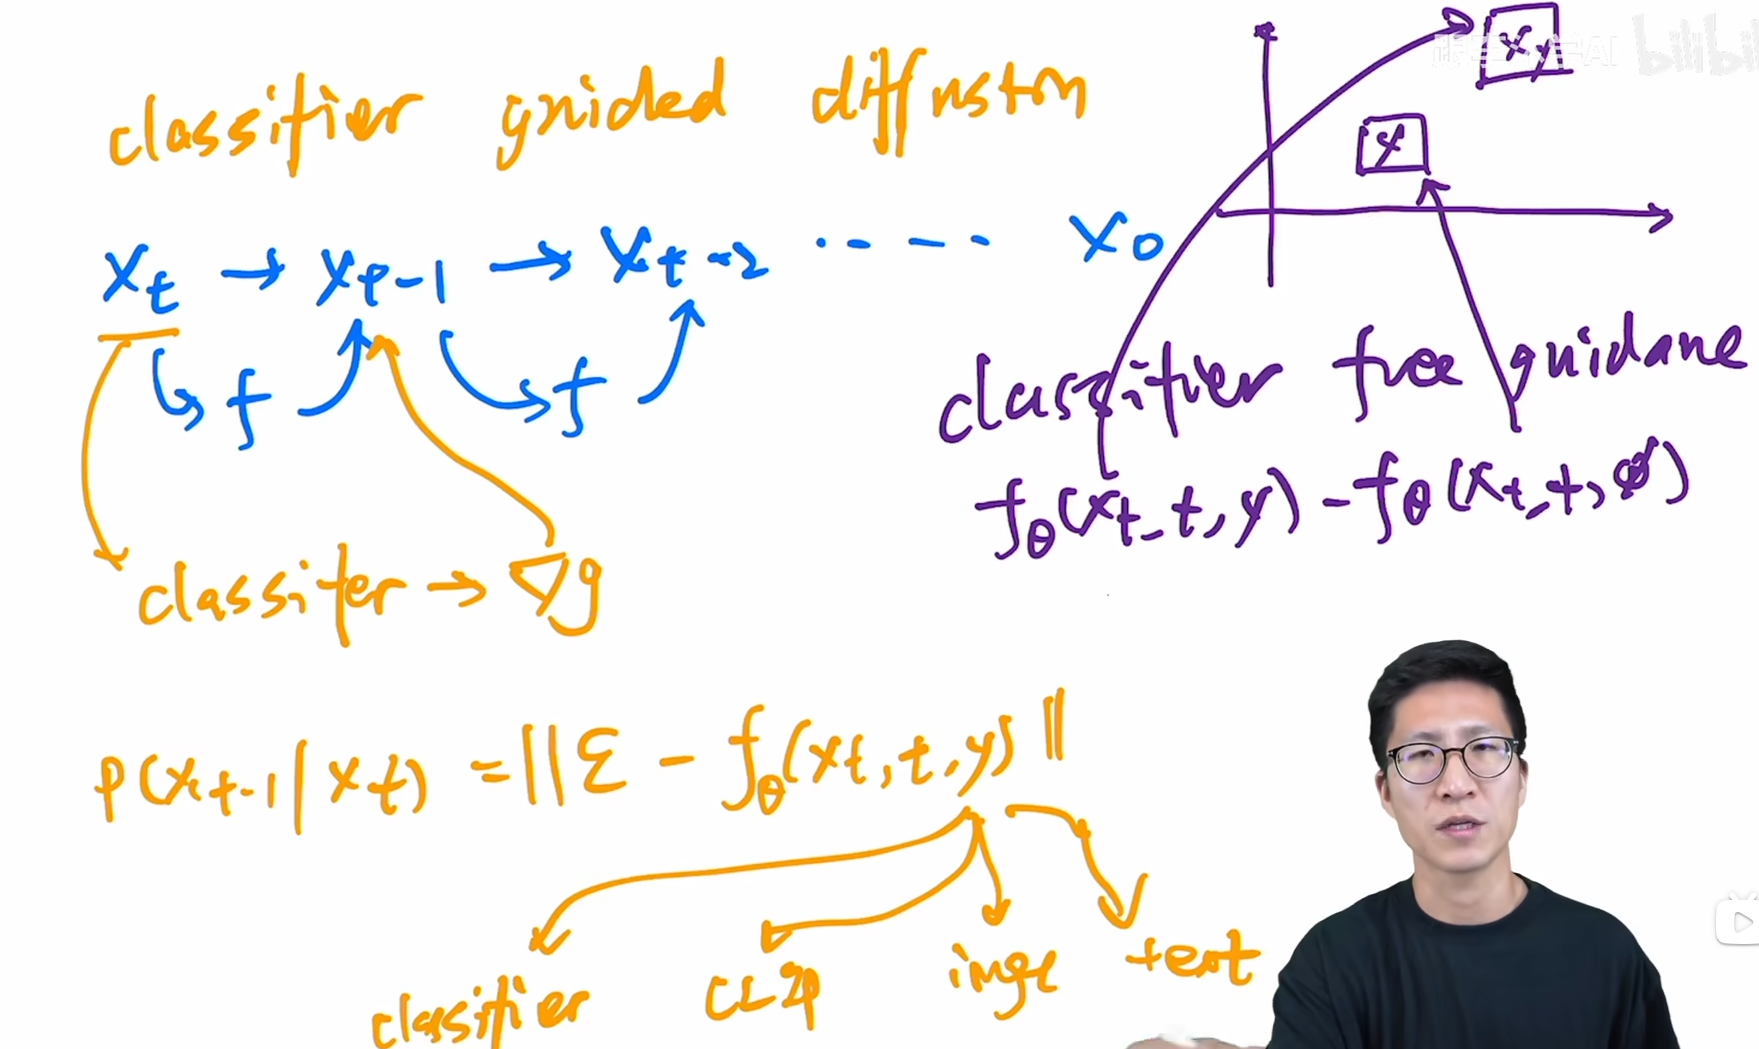 classifier guided diffusion
xt → xt-1 → xt-2 ..---- x0
f f
classifer → ∇g
p(xt-1|xt) = ||ε - fθ(xt,t,y)||
classifier CLIP imge text
x
bilibili
classifier free guidane
fθ(xt,t,y) - fθ(xt,t,∅)